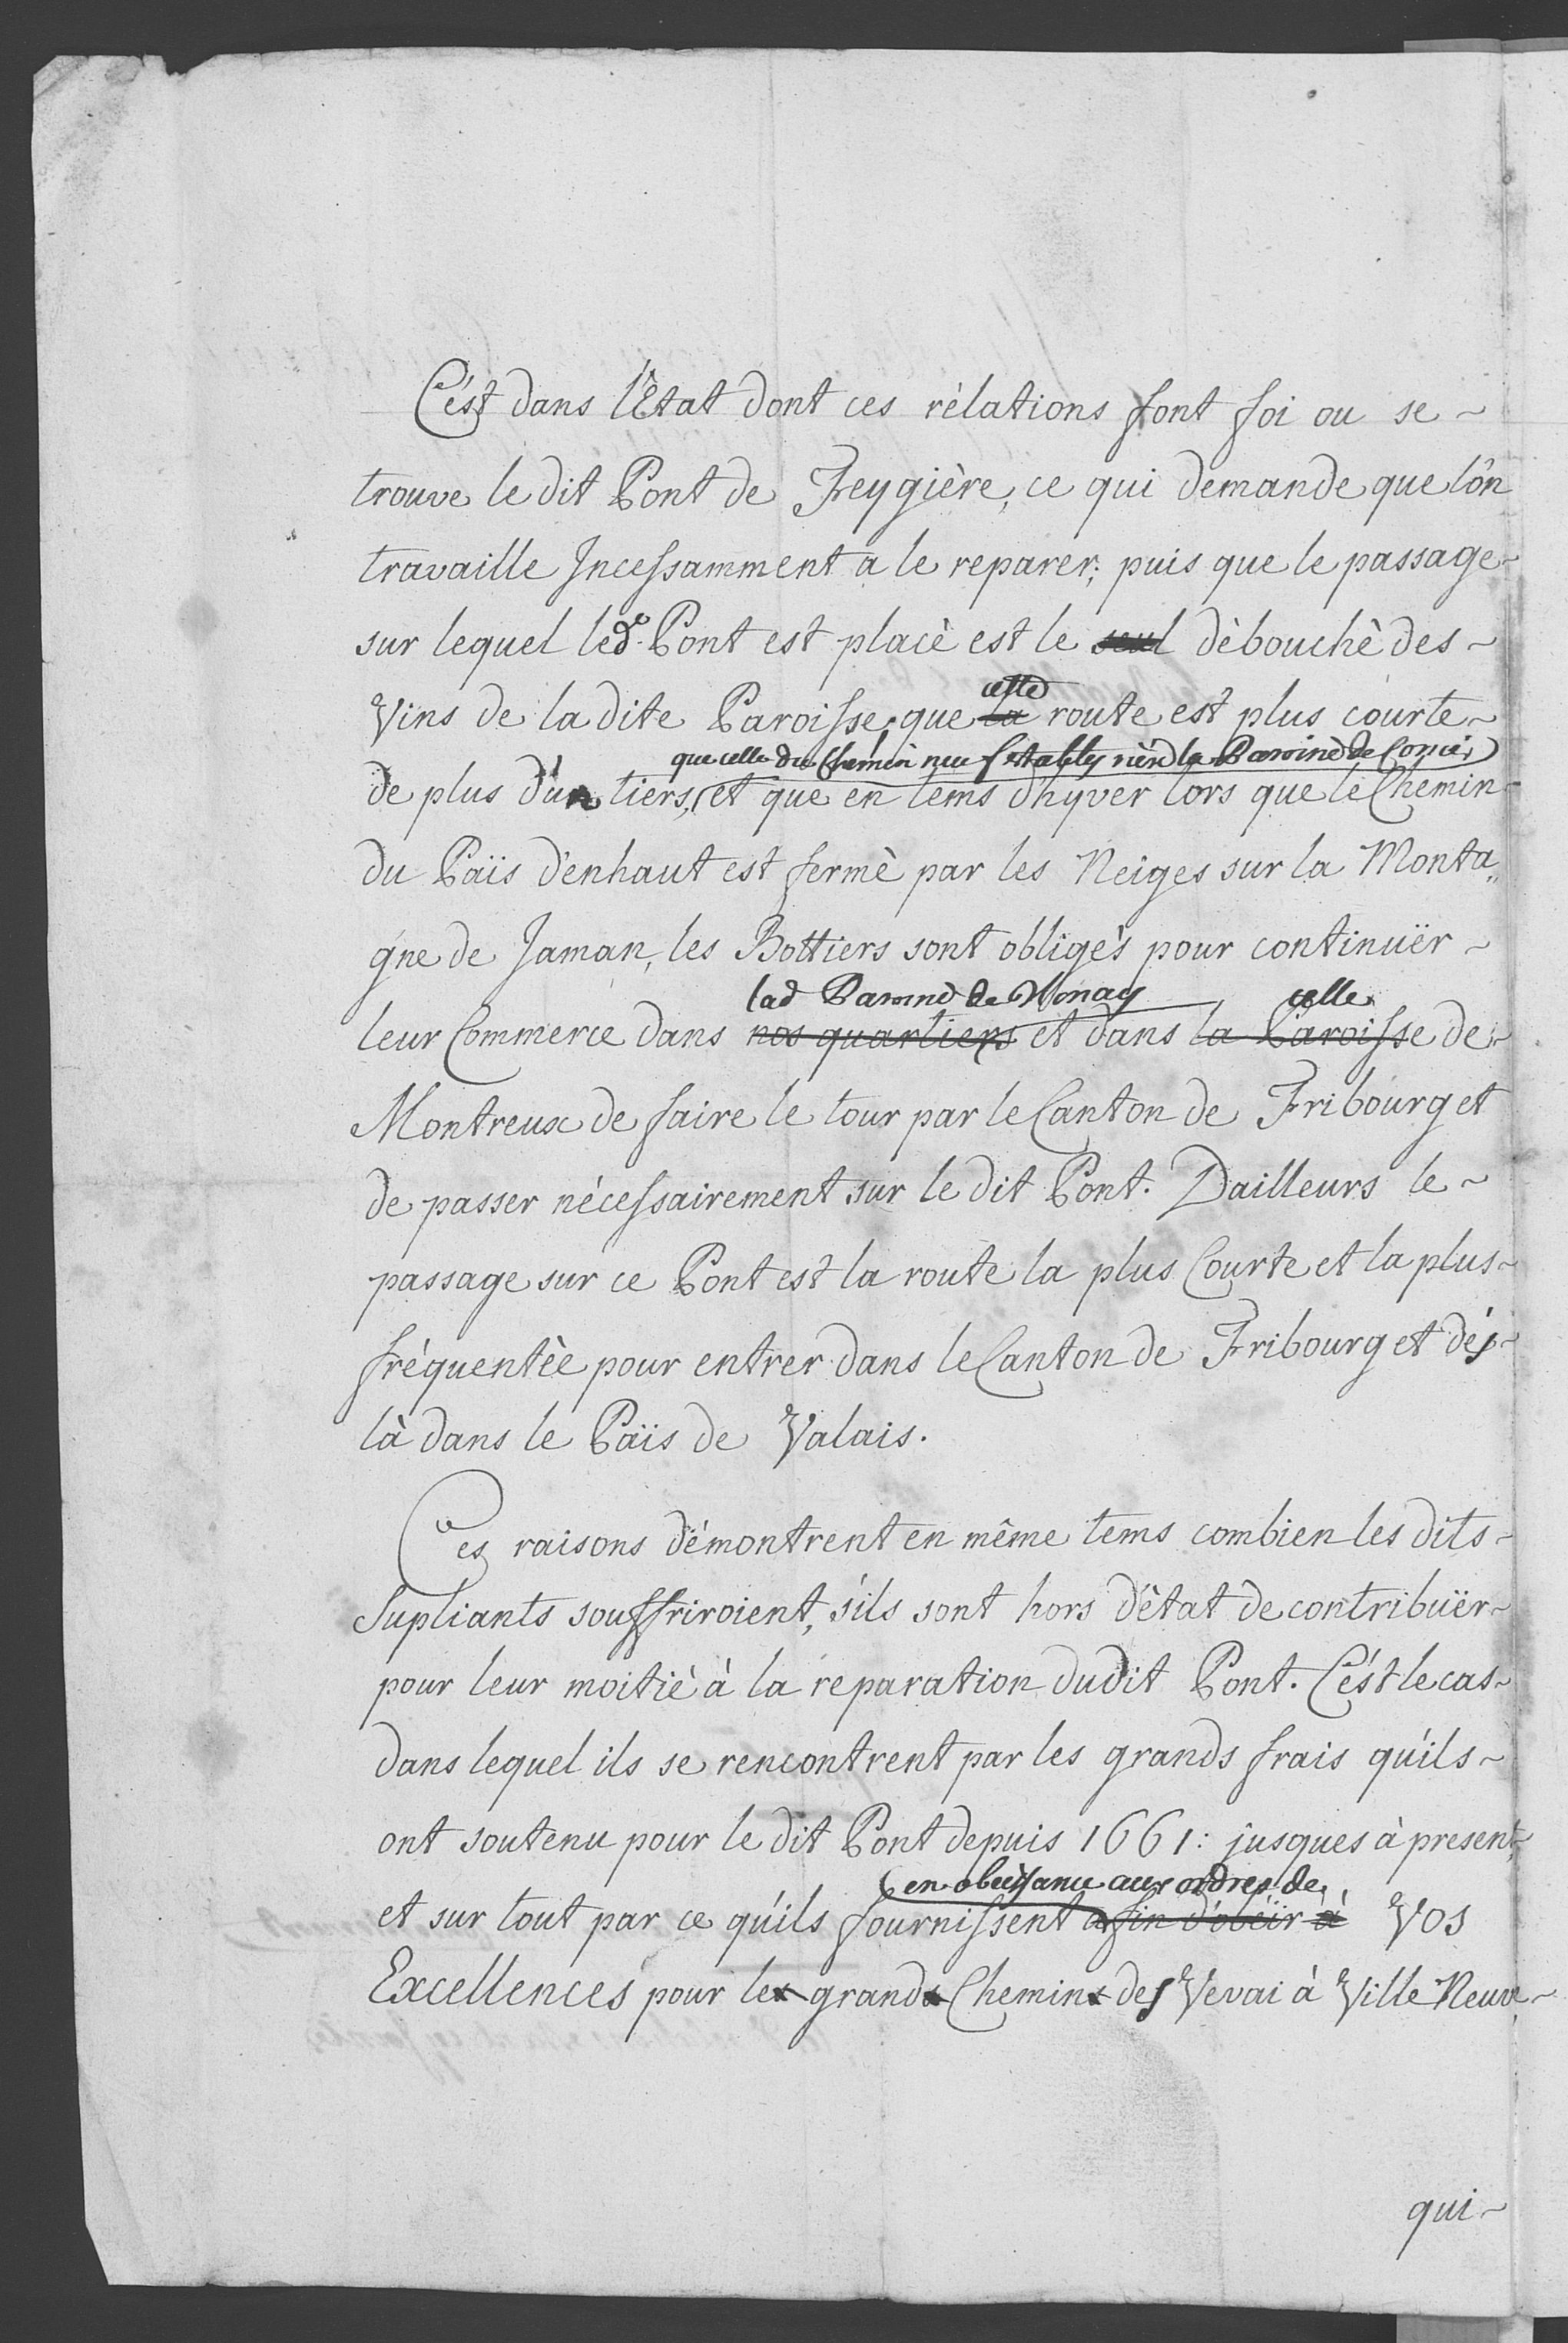 C'est dans l'Etat dont ces rèlations font foi ou se~
trouve le dit Pont de Feygière, ce qui demande que l'on
travaille Incessamment a le reparer; puis que le passage~
sur lequel led.t Pont est placè est le seul dèbouchè des~
Vins de la dite Paroisse; que la route est plus courte~
cette
que celle du Chemin neuf établÿ rière la Paroisse de Corsier
de plus d'un tiers, et que en tems d'hyver lors que le Chemin~
du Païs d'enhaut est fermè par les Neiges sur la Monta„
gne de Jaman, les Bottiers sont obligès pour continuër~
lad Paroisse de Blonay celle
leur Commerce dans nos quartiers et dans la Paroisse de~
Montreux de faire le tour par le Canton de Fribourg et
de passer nècessairement sur le dit Pont. Dailleurs le~
passage sur ce Pont est la route la plus Courte et la plus~
fréquentèe pour entrer dans le Canton de Fribourg et dés~
là dans le Païs de Valais.
Ces raisons démontrent en même tems combien les dits~
Supliants souffriroient, s'ils sont hors d'ètat de contribuër~
pour leur moitiè à la reparation dudit Pont. C'est le cas~
dans lequel ils se rencontrent par les grands frais qu'ils~
ont soutenu pour le dit Pont depuis 1661: jusques à present,
en obeissance aux ordres de
et sur tout par ce qu'ils fournissent afin d'obeïr à Vos
Excellences pour les grands Chemins des Vevai à Ville Neuve~
qui~